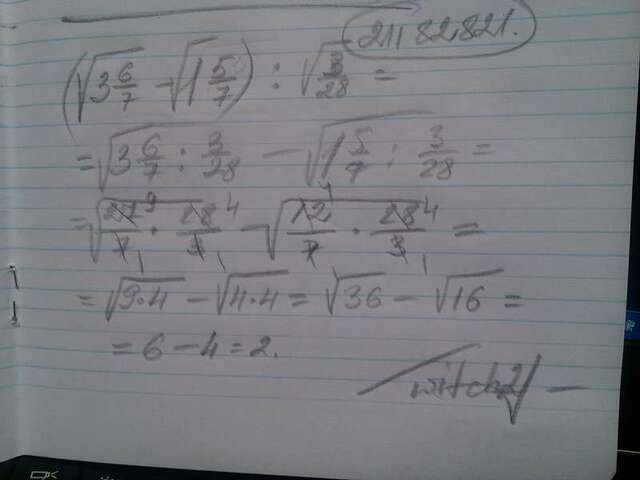 21182821.
(√3 6/7 - √1 5/7) : √3/28 =
= √3 6/7 : 3/28 - √1 5/7 : 3/28 =
= √27/7 · 28/3 - √12/7 · 28/3 =
= √9·4 - √4·4 = √36 - √16 =
= 6 - 4 = 2.